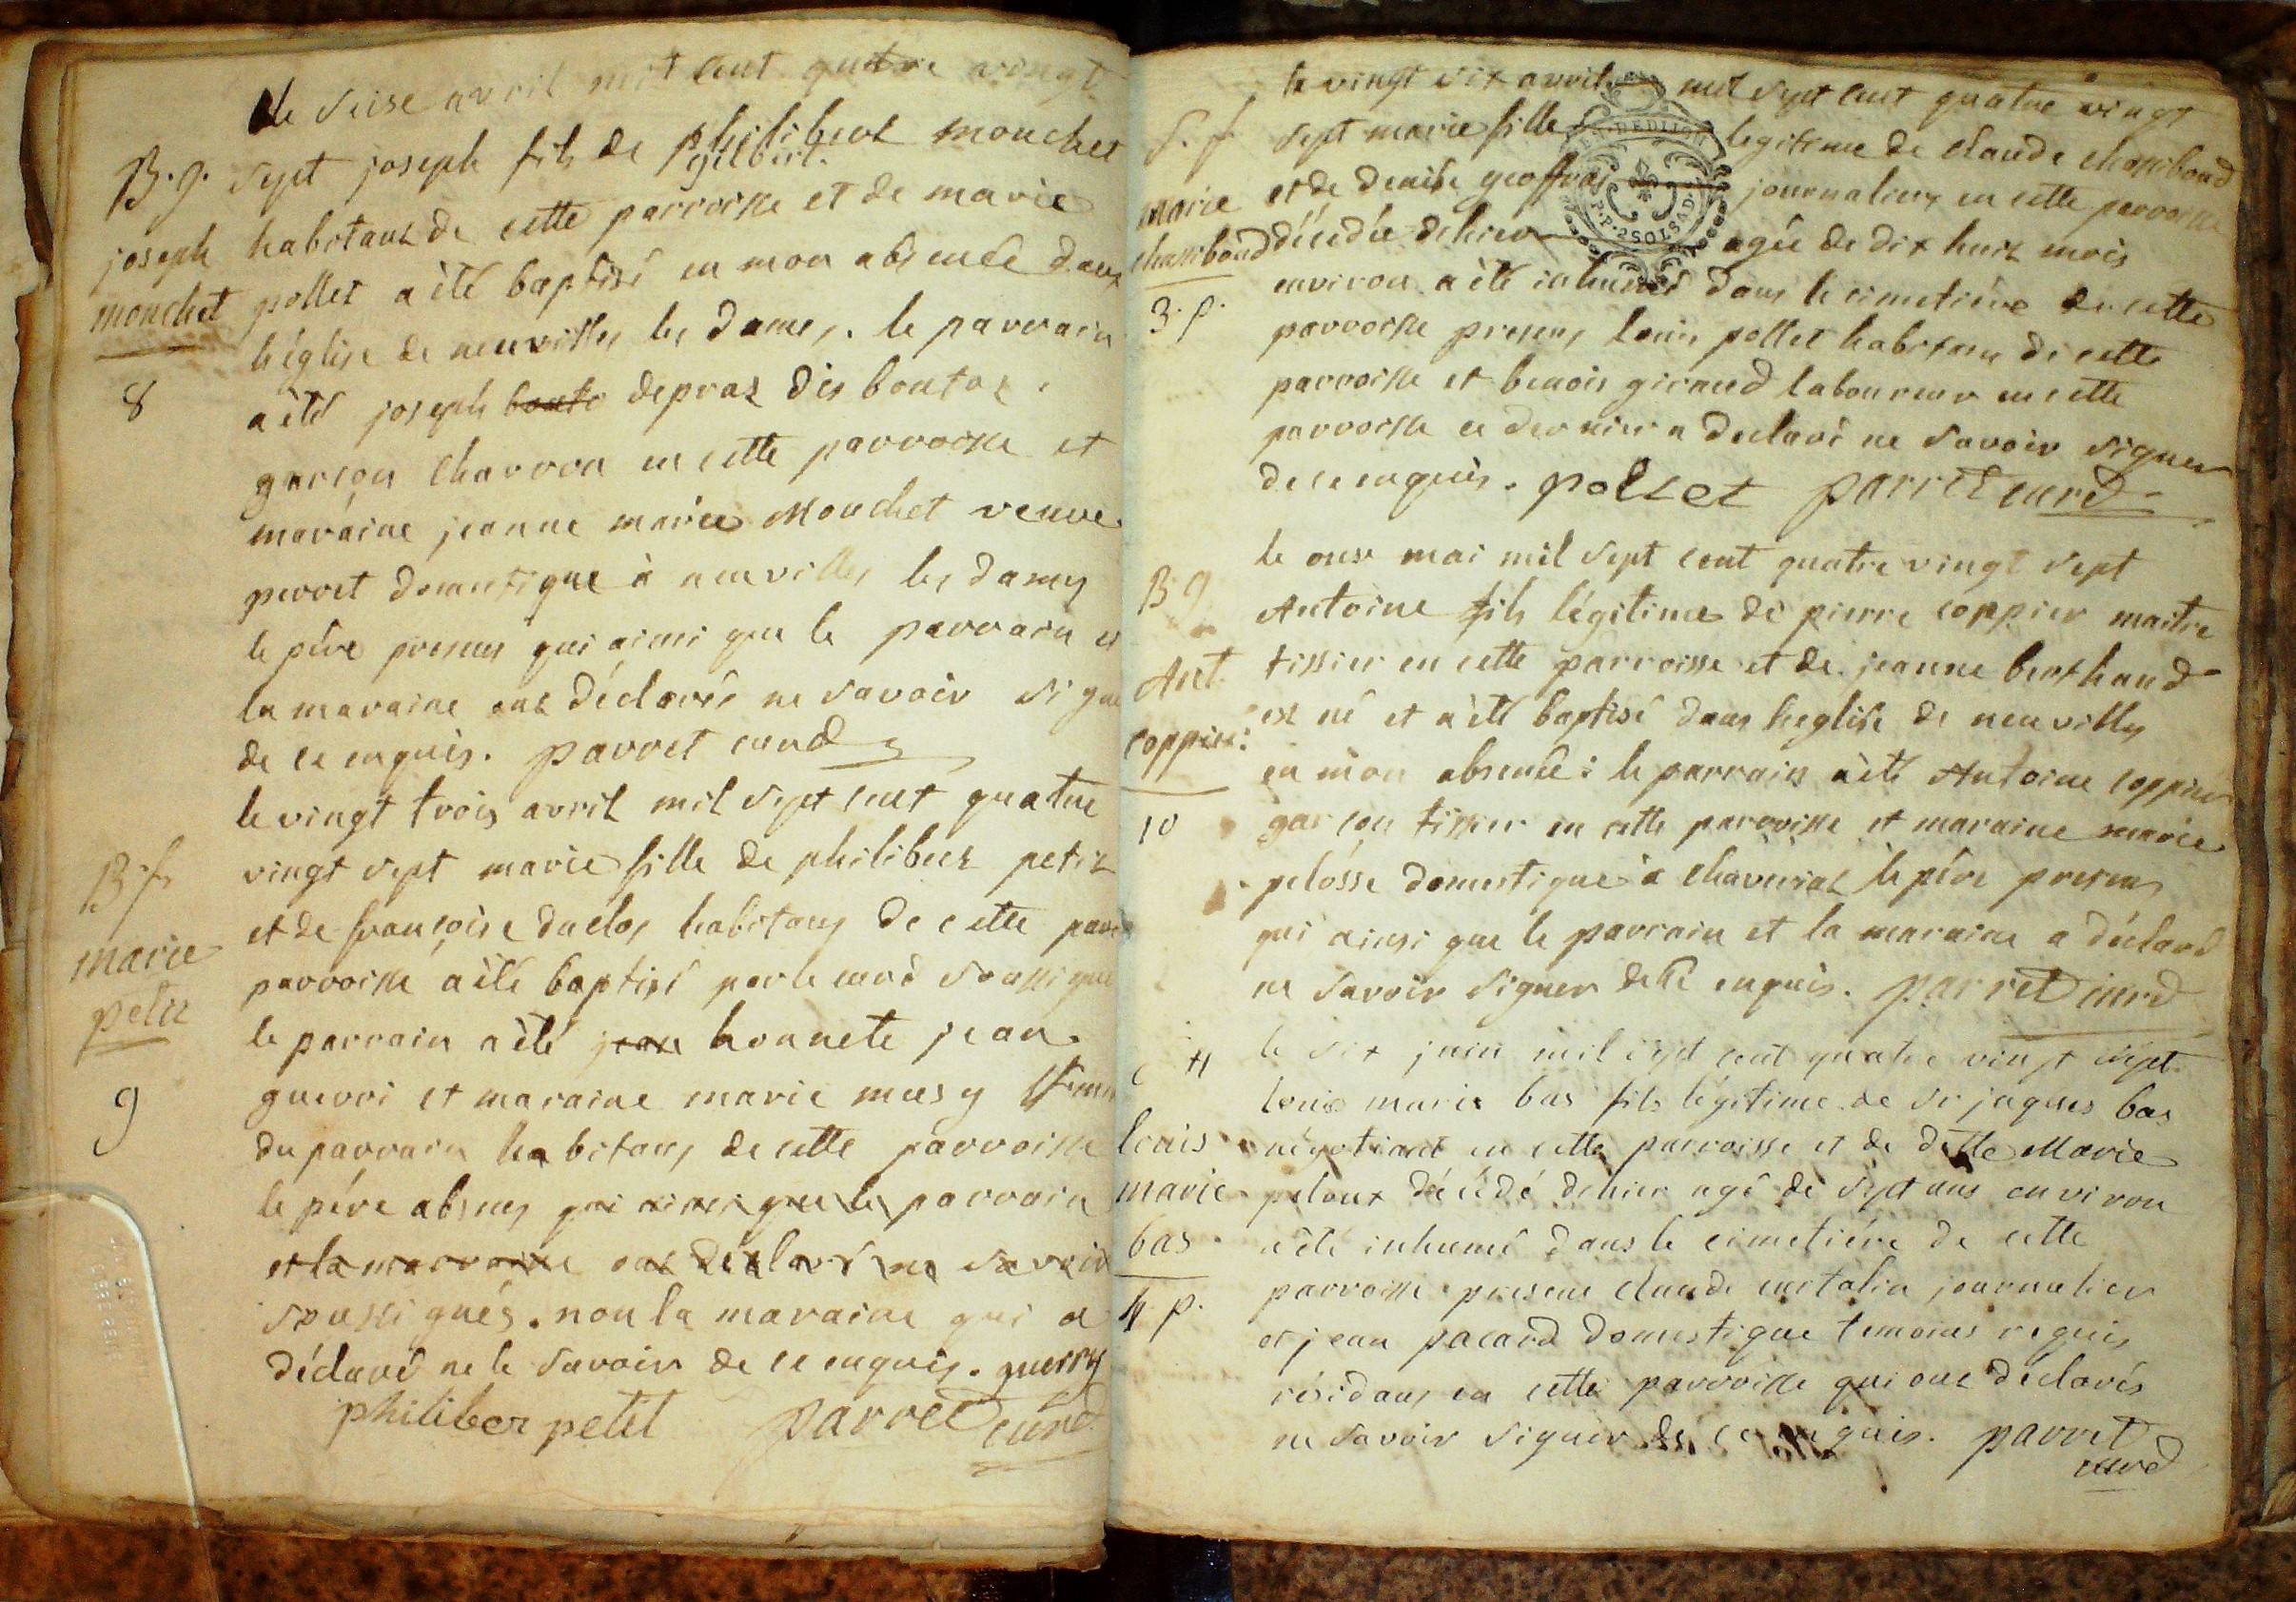 le seise avril mil cent quatre vingt
B. g. sept joseph fils de philibert mouchet
gilbert.
joseph habitant de cette parroisse et de marie
mouchet pollet a été baptisé en mon absence dans
l'église de neuvilles les dames. le parrain
8 a été joseph boute depraz dis boutoz.
garçon charron en cette parroisse et
maraine jeanne marie Mouchet veuve
perret domestique à neuvilles les dames
le pére presens qui ainsi que le parrain et
la maraine ont déclarés ne savoir signe
de ce enquis. parret curé
le vingt trois avril mil sept cent quatre
B. f. vingt sept marie fille de philibert petit
et de françoise duclos habitans de cette paro
marie parroisse a été baptisé par le curé soussigné
petit le parrain a été jean honnete jean
9 guerri et maraine marie musy
du parrain habitans de cette parroisse
le pére absens qui ainsi que le parrain
et la marraine ont déclaré ne savoir
soussignés. non la maraine qui a
déclaré ne le savoir de ce enquis. guerry
philiber petit parret curé
le vingt six avril mil sept cent quatre vingt
S. f. sept marie fille legitime de claude chassiboud
marie et de denise geoffray journaliers en cette parroisse
chassiboud décédée dehier agée de dix huit mois
3. p. environ a été inhumée dans le cimetiére de cette
parroisse presens louis pollet habitans de cette
parroisse et benois giraud laboureur en cette
parroisse ce dernier a declaré ne savoir signer
de ce enquis. pollet parret curé
le onse mai mil sept cent quatre vingt sept
B g. Antoine fils légitime de pierre coppier maitre
Ant. tissier en cette parroisse et de jeanne berthaud
coppier: est né et a été baptisé dans l'eglise de neuvilles
en mon absence: le parrain a été Antoine coppier
10 garçon tissier en cette parroisse et maraine marie
pelosse domestique à chaveiriat le pére presens
qui ainsi que le parrain et la maraine a déclaré
ne savoir signer de ce enquis. parret curé
le six juin mil sept cent quatre vingt sept
louis marie bas fils légitime de sr jaques bas
louis négotiant en cette parroisse et de dlle Marie
marie peloux décédé dehier agé de sept ans environ
bas a été inhumé dans le cimetiére de cette
4 p. parroisse presens claude curtalin journalier
et jean pacard domestique temoins requis
résidans en cette parroisse qui ont déclarés
ne savoir signer de ce enquis. parret
curé
P.P.2SOLSAD